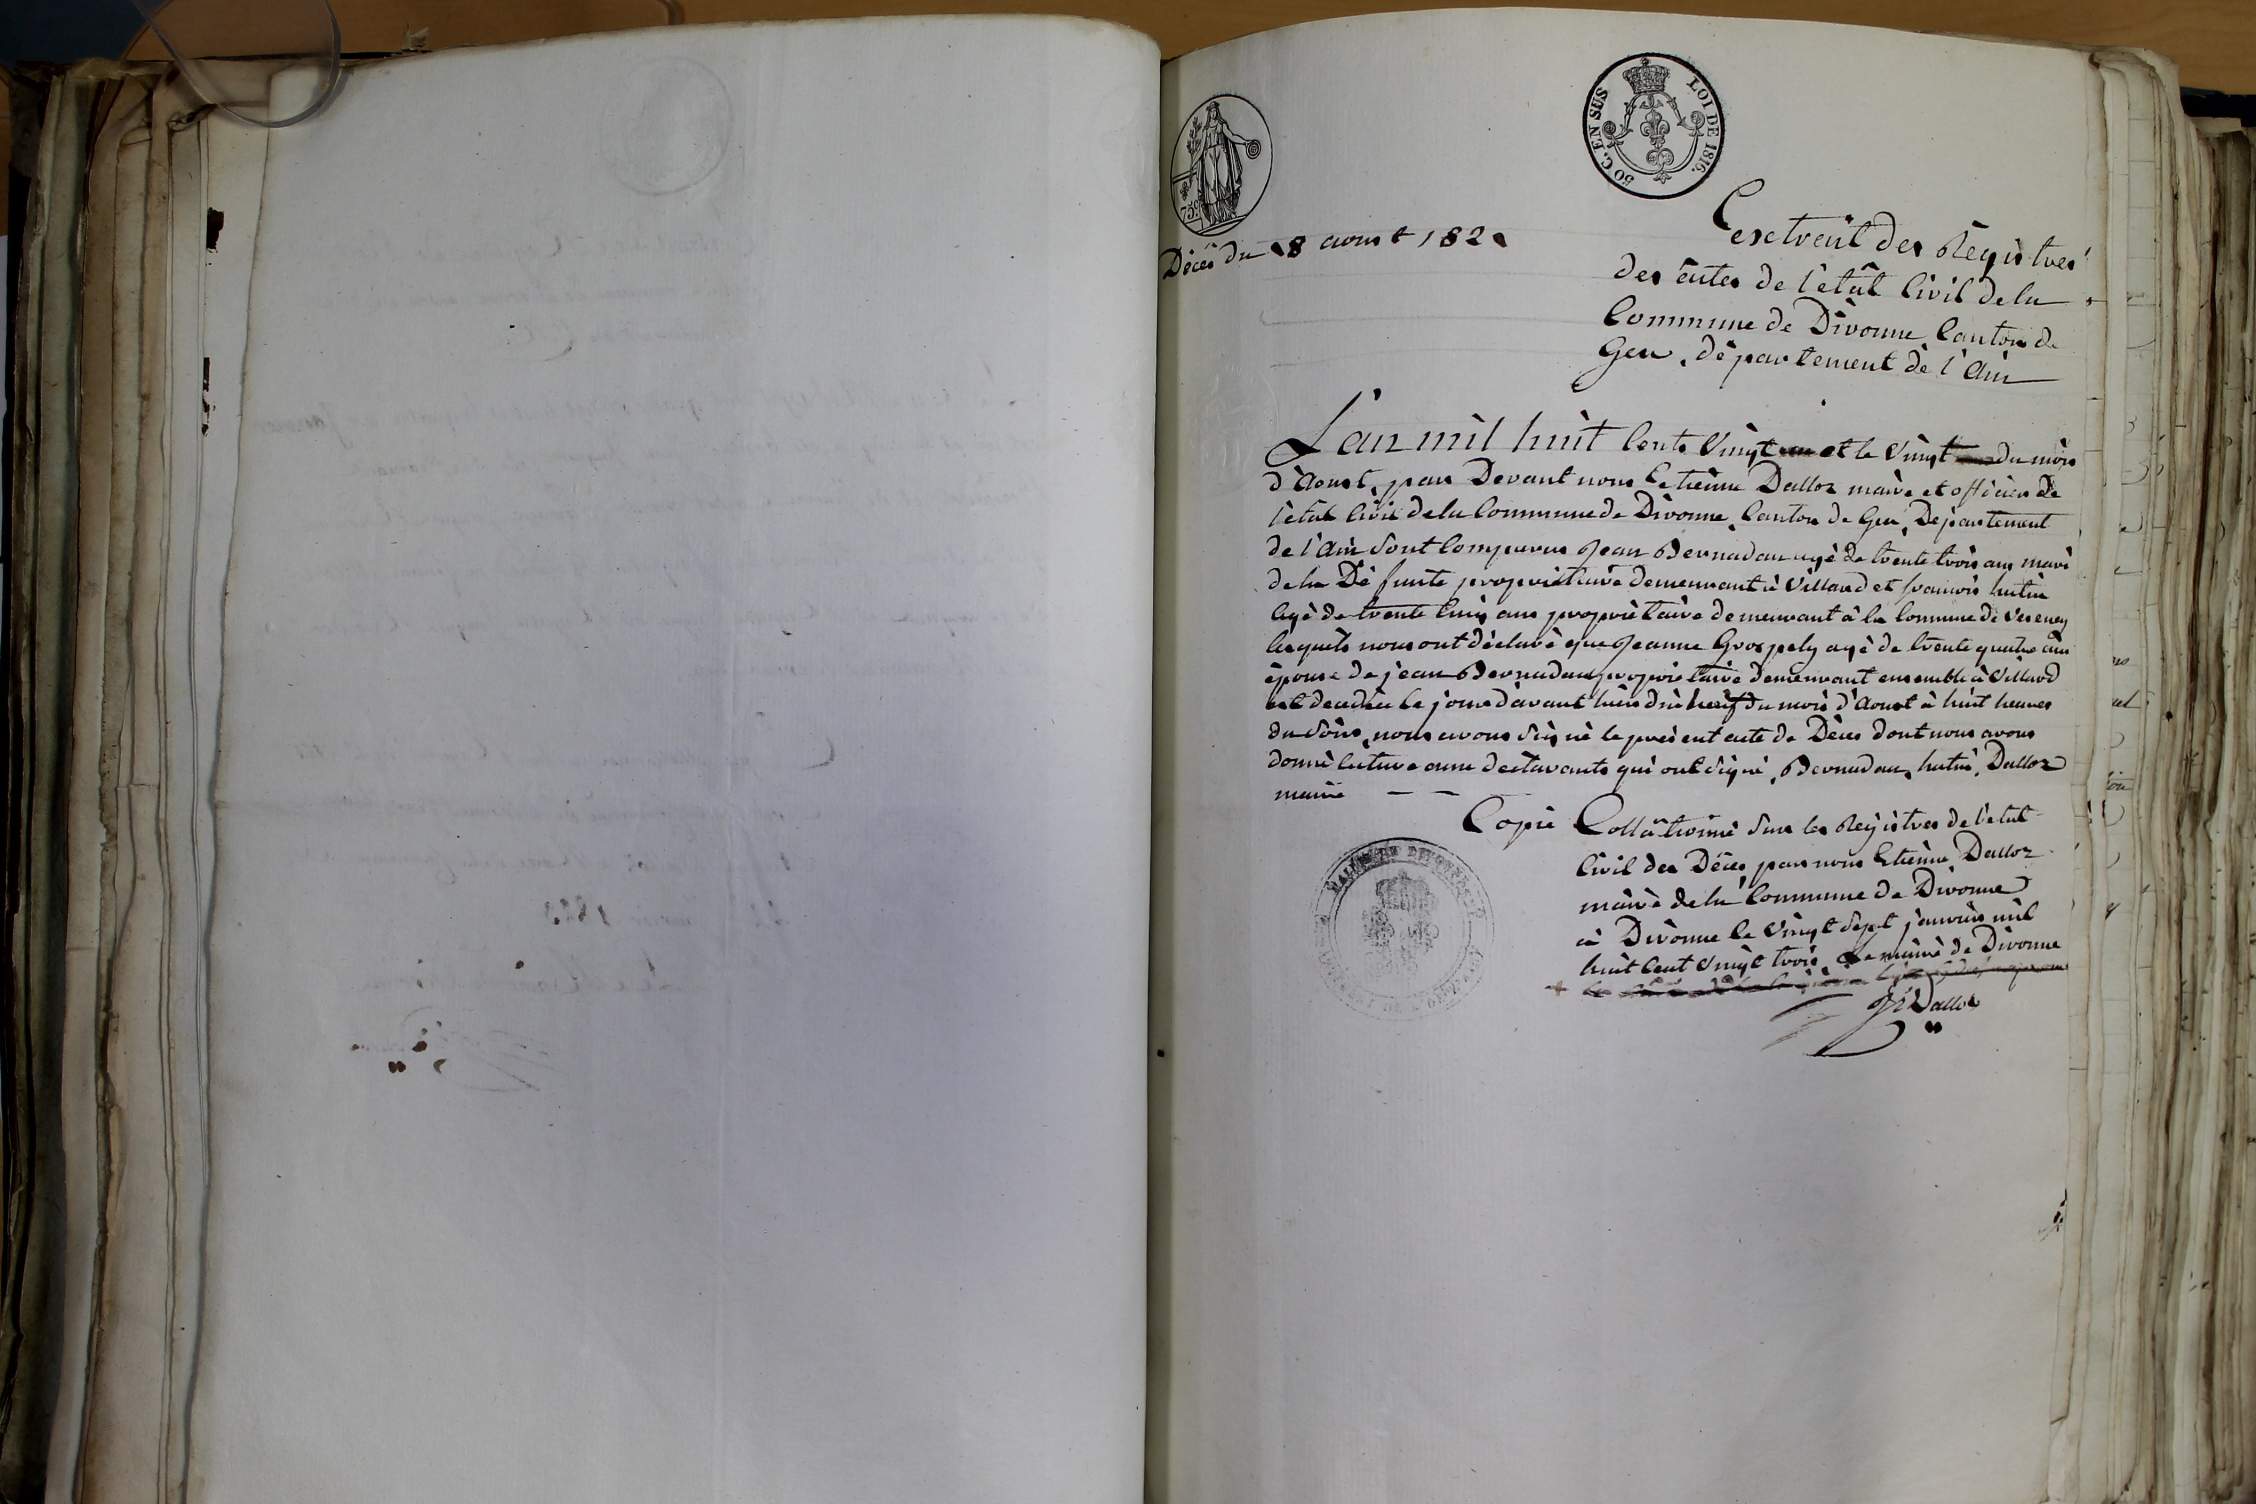 50 C. EN SUS LOI DE 1816.
75c
Décès du 18 aoust 182
extrait des Régistres
des actes de l'étàt Civil de la
Commune de Divonne Canton de
Gex, département dè l'Ain
L'an mil huit Cents Vingt et le Vingt du mois
d'Aoust, par Devant nous Etiènne Dalloz maire et officier de
l'état Civil de la Commune de Divonne, Canton de Gex, Département
de l'Ain Sont Comparus Jean Bernadau agé de trente trois ans mari
de la Défunte propriètaire demeurant à Villard et francois hutin
Agé de trente Cinq ans propriètaire demeurant à la Commune de Vesency
lesquels nous ont déclaré que Jeanne Grospely agé de trente quatre ans
épouse de jean Bernadau propriètaire demeurant ensemble à Villard
est decedée le jour d'avant hièr du mois d'Aoust à huit heures
du Soir, nous avons Signé le present acte de Décès dont nous avons
donné lecture aux declarants qui ont Signé, Bernadau, hutin, Dalloz
maire
Copie Collationné Sur les Régistres de l'état
Civil des Décès, par nous Etiènne Dalloz
maire de la Commune de Divonne
à Divonne le Vingt Sept janvier mil
huit Cent Vingt trois, Le maire de Divonne
Dalloz